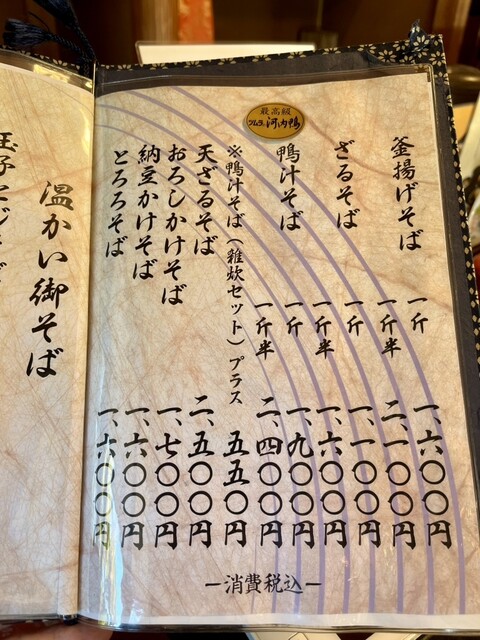 最高級
ツムラ 河内鴨
釜揚げそば 一斤 一、六〇〇円
一斤半 二、一〇〇円
ざるそば 一斤 一、一〇〇円
一斤半 一、六〇〇円
鴨汁そば 一斤 一、九〇〇円
一斤半 二、四〇〇円
※鴨汁そば（雑炊セット）プラス 五五〇円
天ざるそば 二、五〇〇円
おろしかけそば 一、七〇〇円
納豆かけそば 一、六〇〇円
とろろそば 一、六〇〇円
ー消費税込ー
温かい御そば